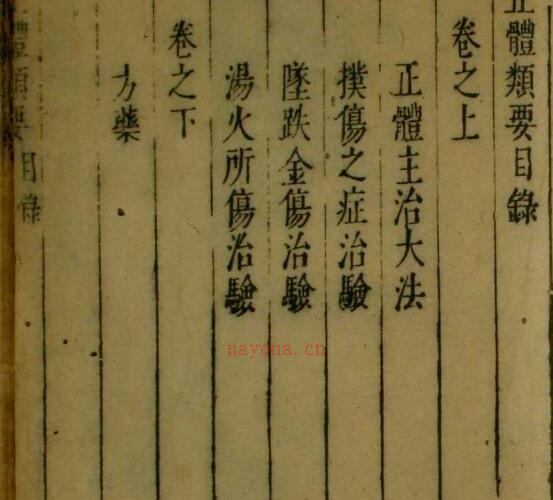 正體類要目錄
卷之上
正體主治大法
撲傷之症治驗
墜跌金傷治驗
湯火所傷治驗
卷之下
方藥
體類要 目錄
nayona.cn